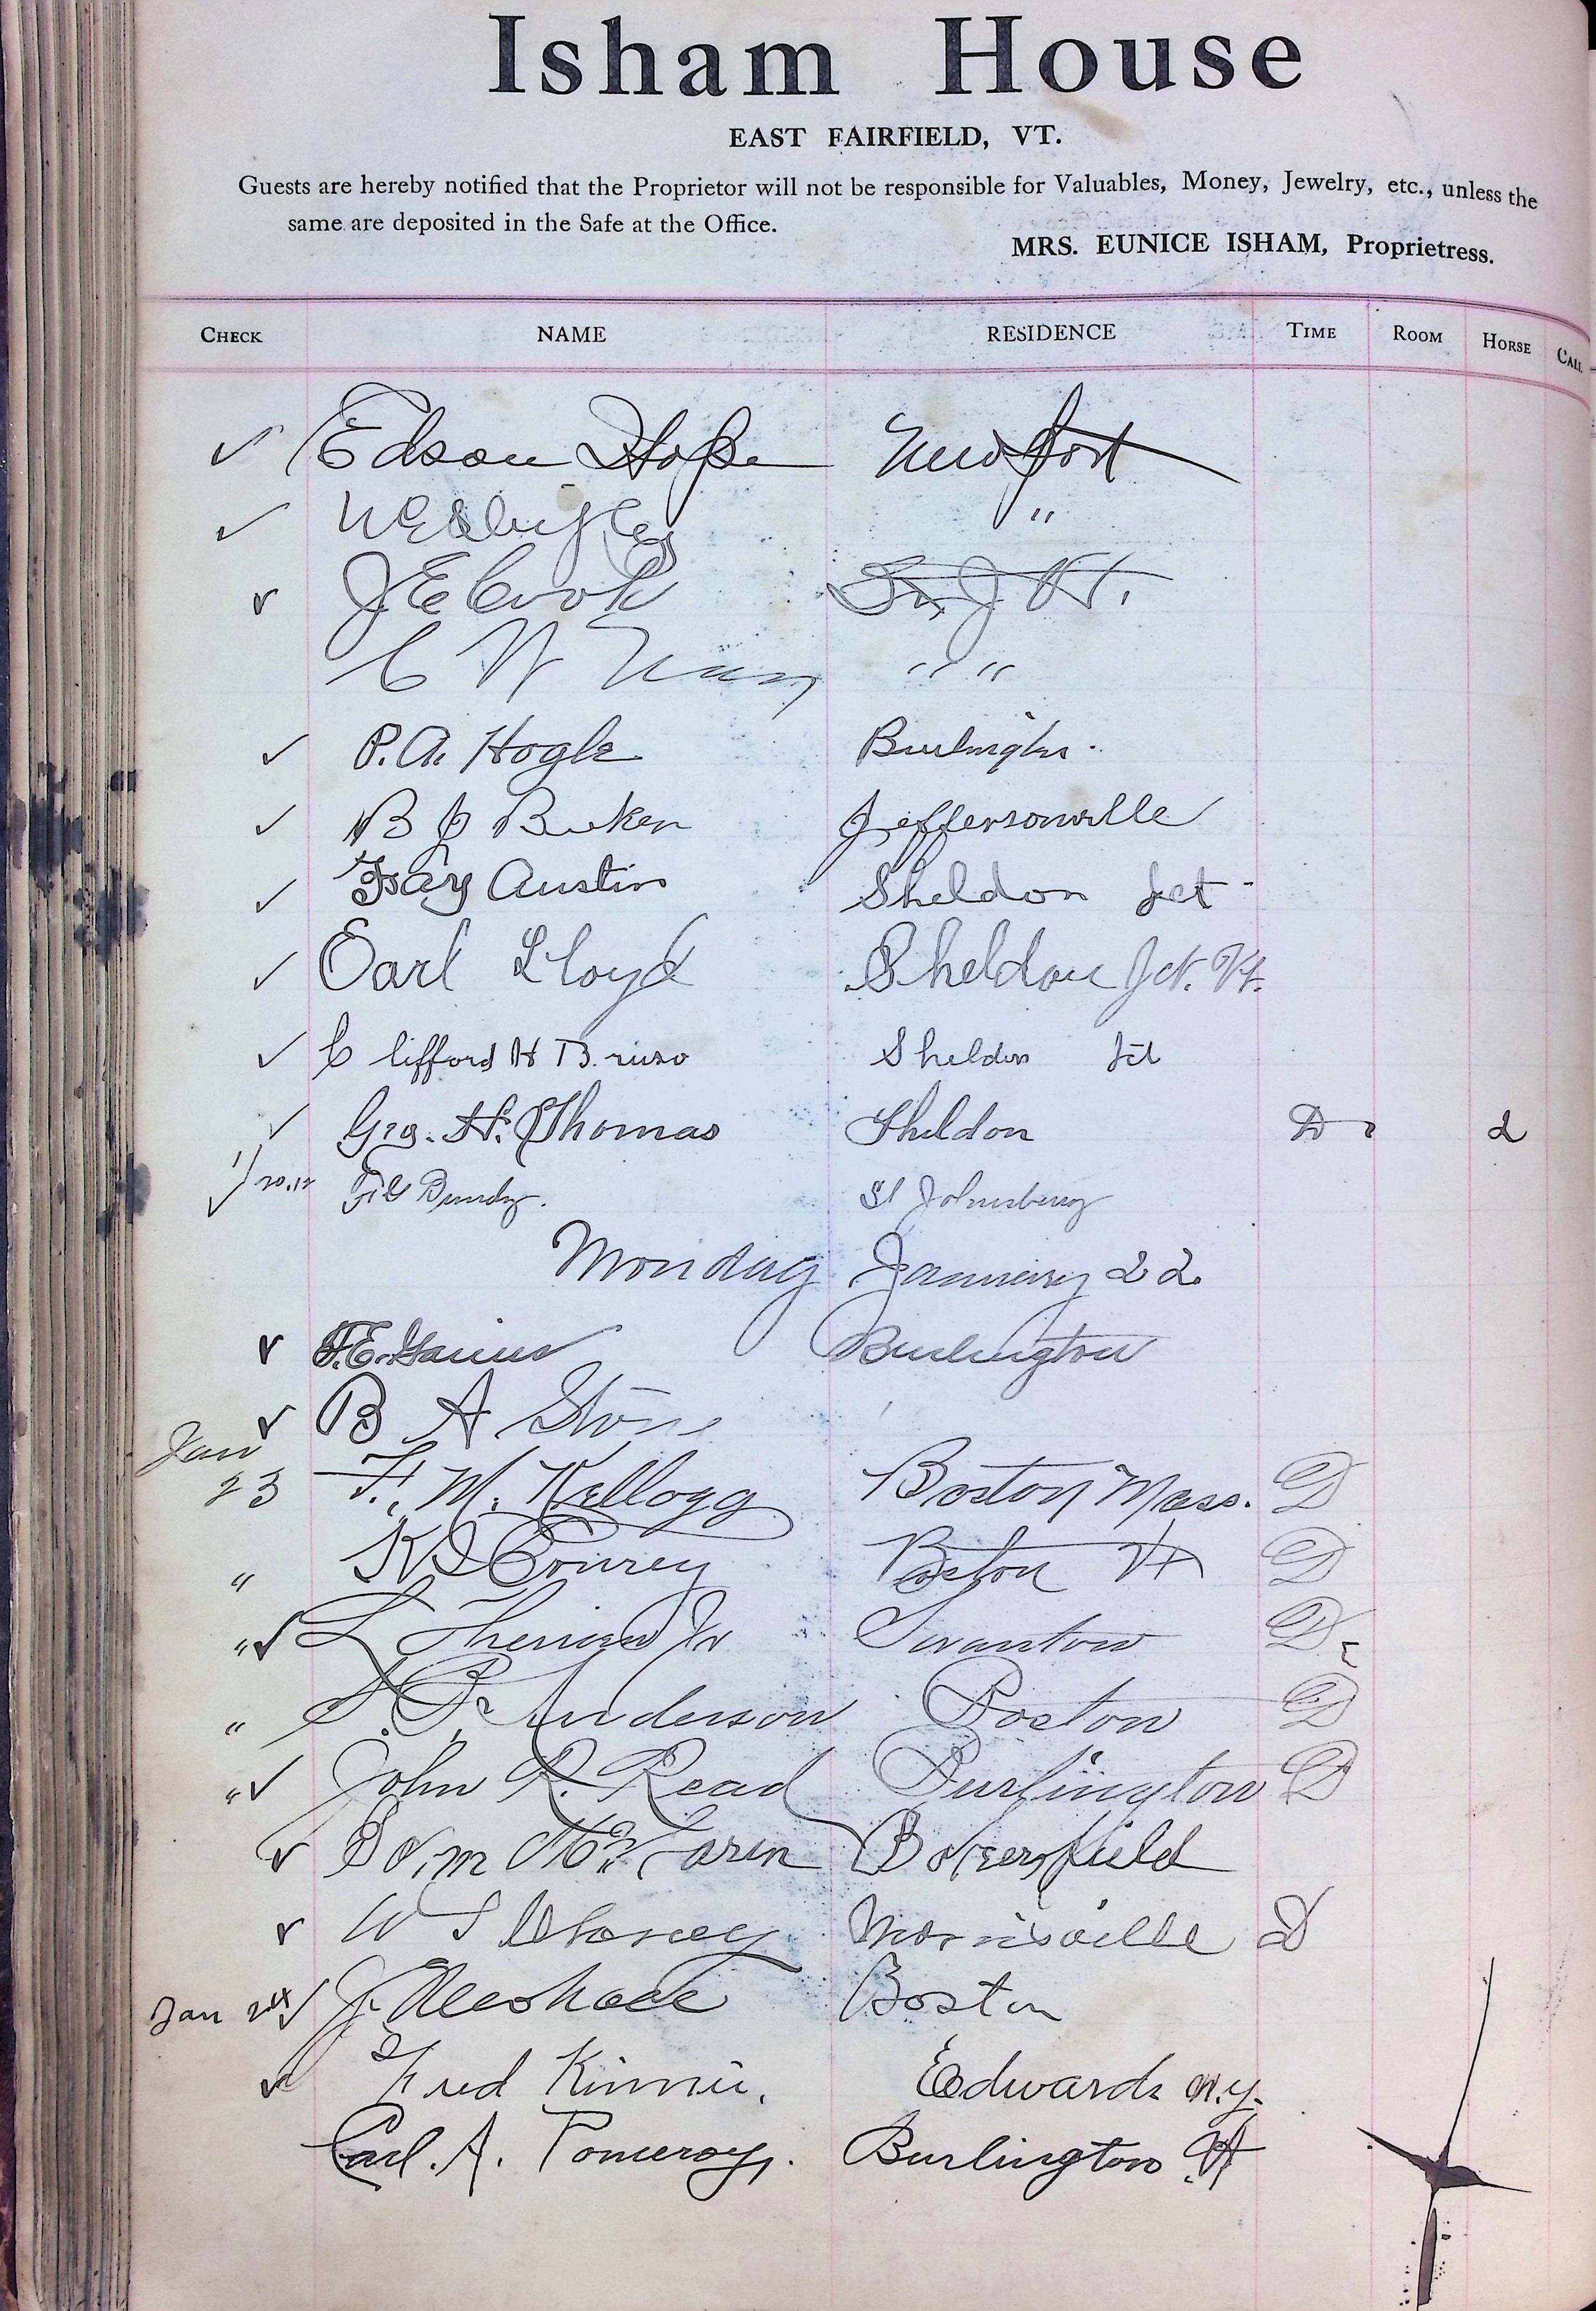 Isham House
EAST FAIRFIELD, VT.
Guests are hereby notified that the Proprietor will not be responsible for Valuables, Money, Jewelry, etc., unless the
same are deposited in the Safe at the Office.
MRS. EUNICE ISHAM, Proprietress.
CHECK NAME RESIDENCE TIME ROOM HORSE CALL
✓ Edson Newport
✓ "
✓ J E Cook St. J Vt.
C W " "
✓ P. A. Hogle Burlington
✓ B J Jeffersonville
✓ Fay Austin Sheldon Jct
✓ Earl Lloyd Sheldon Jct. Vt.
✓ Clifford H Bruso Sheldon Jct
✓ Geo. H. Thomas Sheldon D 2
✓ 1/20.12 Bundy. St Johnsbury
Monday January 22
✓ F. E. Burlington
✓ B A Stone
Jan
23 F. M. Kellogg Boston Mass. D
" Conrey Boston Vt D
" ✓ L Jr Swanton D
" Anderson Boston D
" ✓ John R. Read Burlington D
✓ Bakersfield
✓ W Morrisville D
Jan 24 ✓ J. Boston
✓ Fred Edwards N.Y.
Carl. A. Pomeroy. Burlington Vt